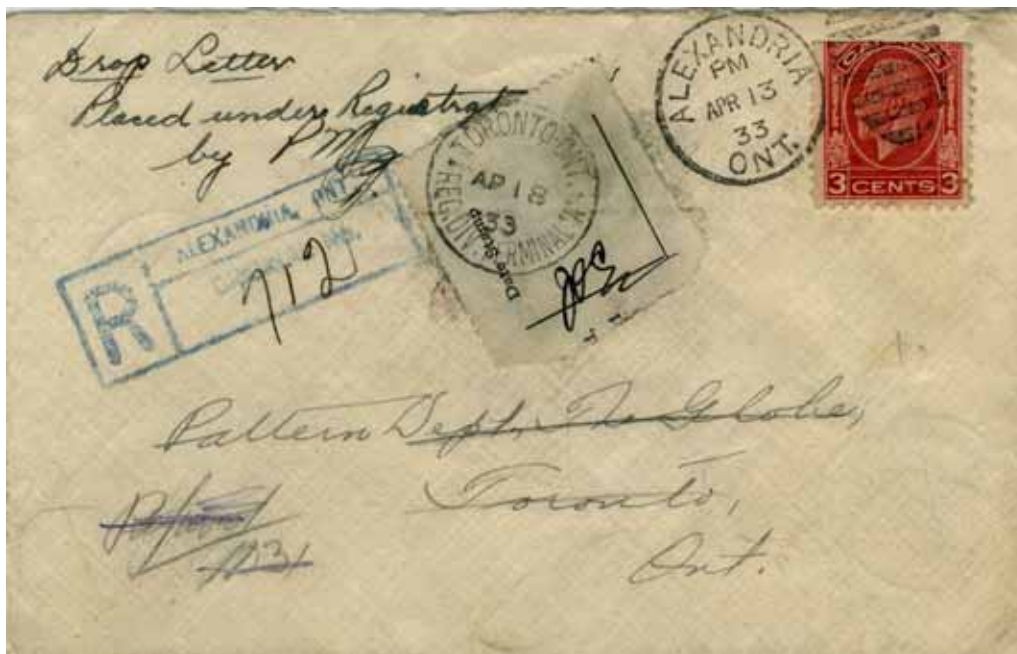 Drop Letter
Placed under Registrat
by PM
ALEXANDRIA
PM
APR 13
33
ONT.
3 CENTS 3
TORONTO-ONT.
AP 18
33
REG. DIV. TERMINAL A
Date Stamp
R
ALEXANDRIA, ONT.
712
Pattern Dept, The Globe,
Toronto,
Ont.